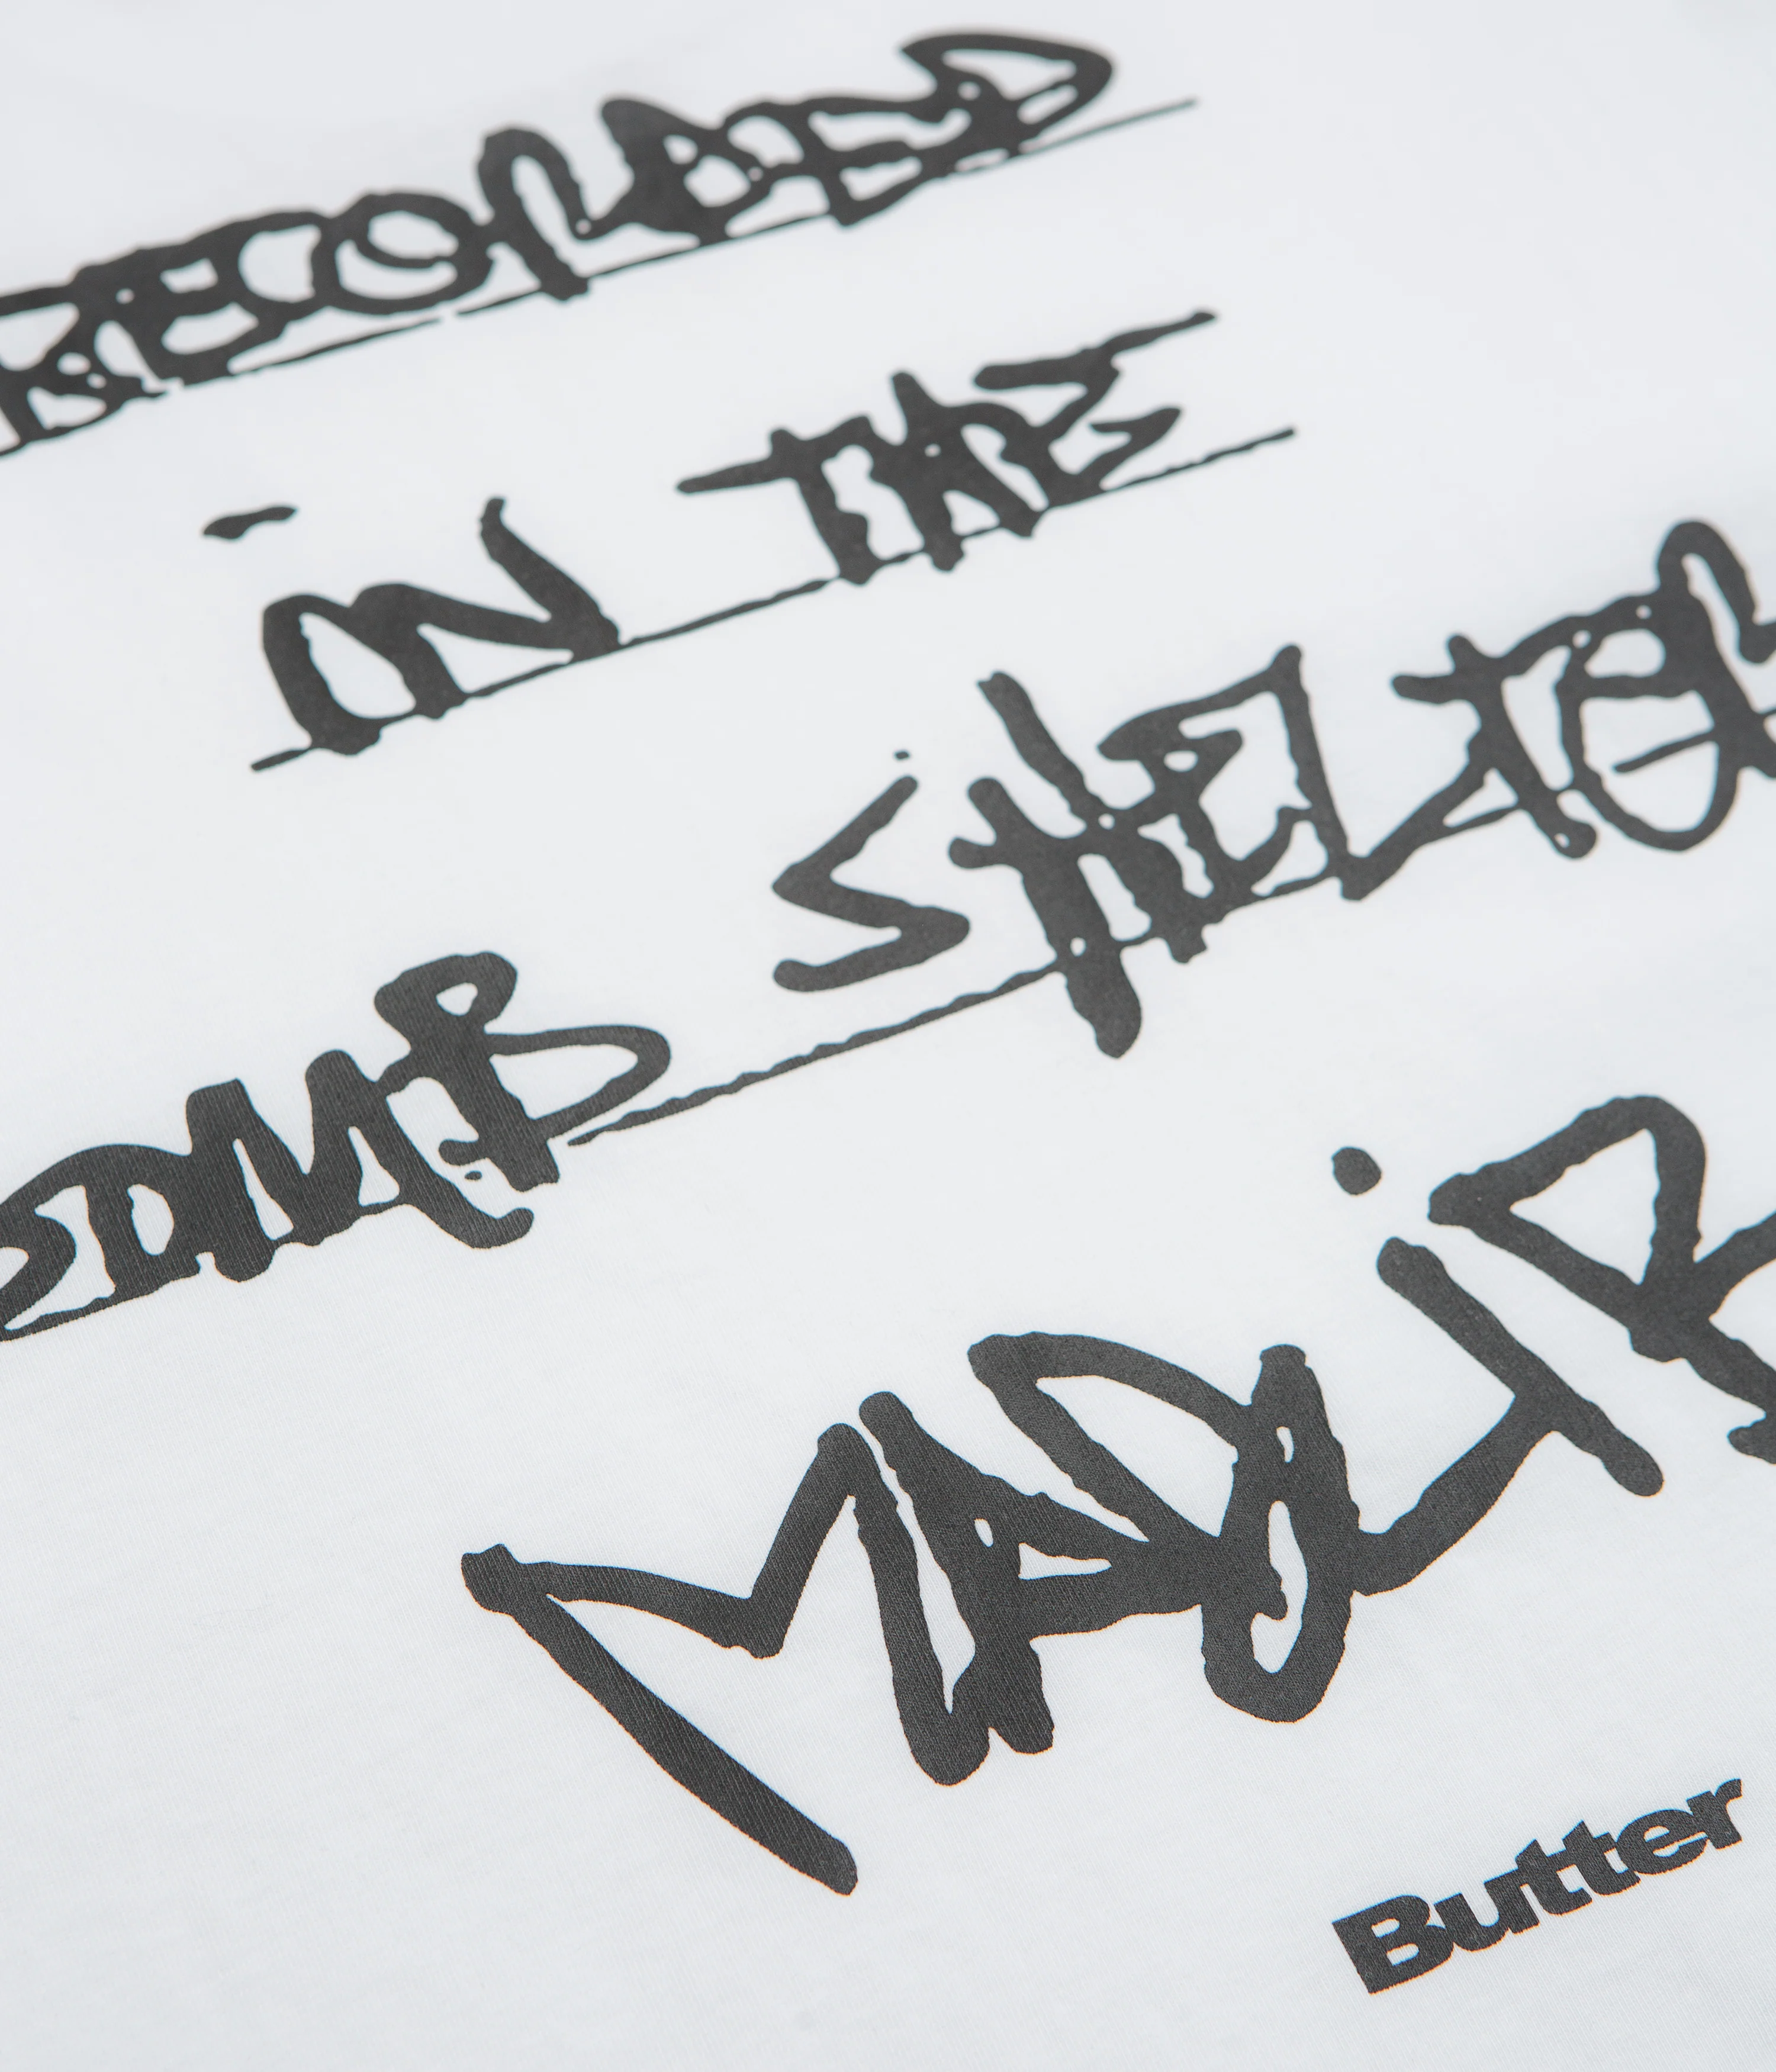 RECORDED
iN THE
BOMB SHELTER
MADLiB
Butter